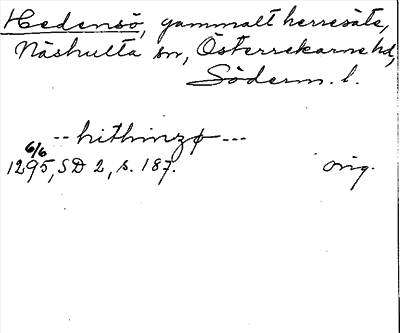 Hedensö, gammalt herresäte,
Näshulta sn, Österrekarne hd,
Söderm. l.
-- hithinzø ---
6/6
1295, SD 2, s. 187. orig.